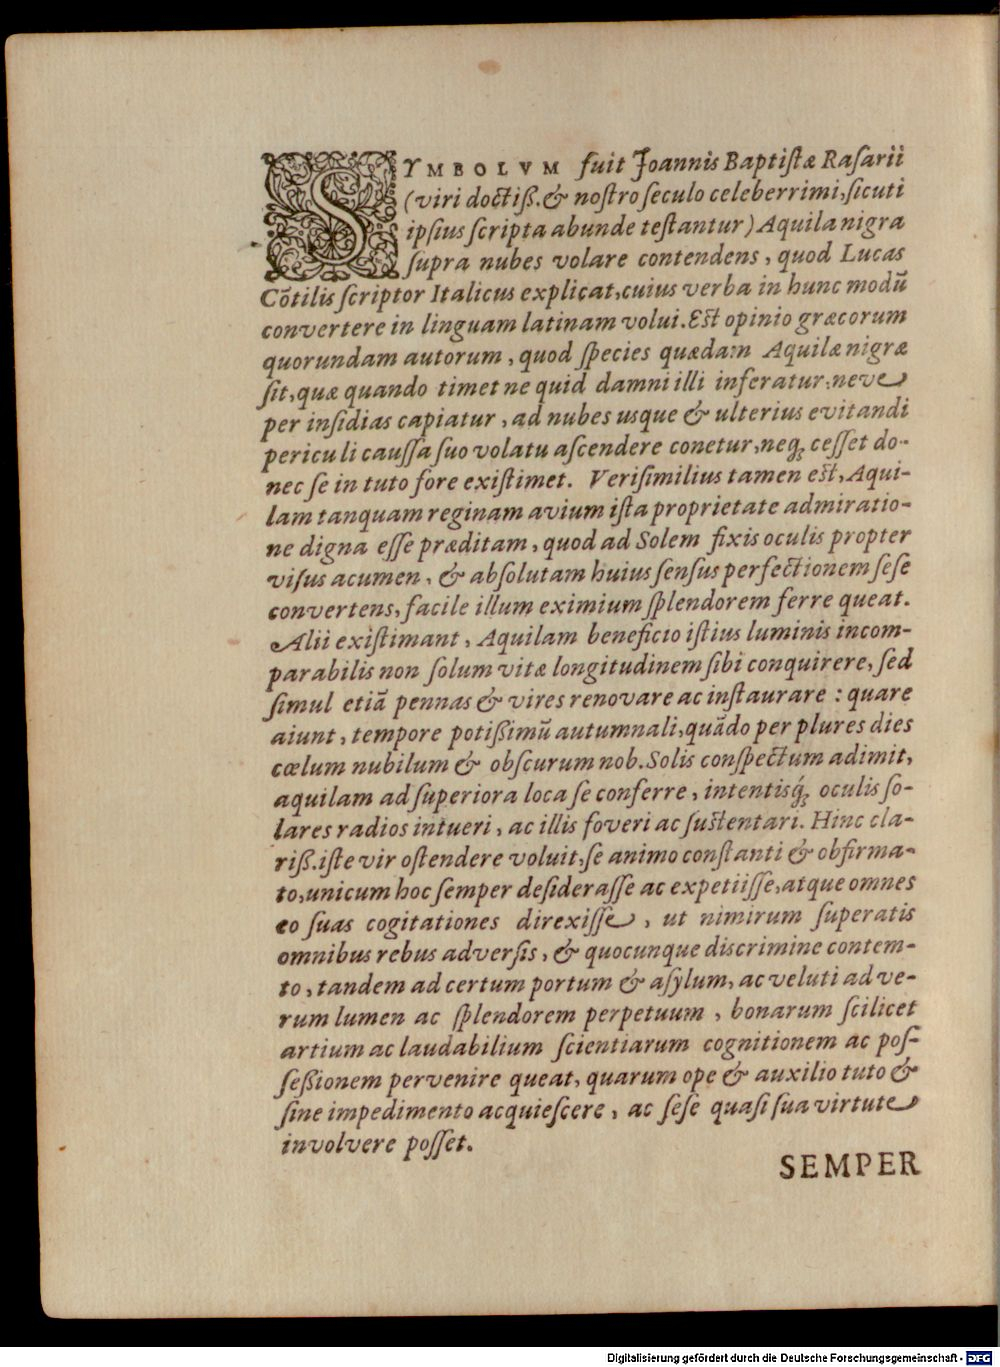 SYMBOLVM fuit Joannis Baptiſtæ Raſarii
(viri doctiß. & noſtro ſeculo celeberrimi, ſicuti
ipſius ſcripta abunde teſtantur) Aquila nigra
ſupra nubes volare contendens, quod Lucas
Cõtilis ſcriptor Italicus explicat, cuius verba in hunc modũ
convertere in linguam latinam volui. Est opinio græcorum
quorundam autorum, quod ſpecies quædam Aquilæ nigræ
ſit, quæ quando timet ne quid damni illi inferatur, neve
per inſidias capiatur, ad nubes usque & ulterius evitandi
periculi cauſſa ſuo volatu aſcendere conetur, neq; ceſſet do-
nec ſe in tuto fore exiſtimet. Veriſimilius tamen est, Aqui-
lam tanquam reginam avium iſta proprietate admiratio-
ne digna eſſe præditam, quod ad Solem fixis oculis propter
viſus acumen, & abſolutam huius ſenſus perfectionem ſeſe
convertens, facile illum eximium ſplendorem ferre queat.
Alii exiſtimant, Aquilam beneficio iſtius luminis incom-
parabilis non ſolum vitæ longitudinem ſibi conquirere, ſed
ſimul etiã pennas & vires renovare ac inſtaurare : quare
aiunt, tempore potißimũ autumnali, quãdo per plures dies
cœlum nubilum & obſcurum nob. Solis conſpectum adimit,
aquilam ad ſuperiora loca ſe conferre, intentisq́; oculis ſo-
lares radios intueri, ac illis foveri ac ſustentari. Hinc cla-
riß. iſte vir oſtendere voluit, ſe animo conſtanti & obfirma-
to, unicum hoc ſemper deſideraſſe ac expetiiſſe, atque omnes
eo ſuas cogitationes direxiſſe, ut nimirum ſuperatis
omnibus rebus adverſis, & quocunque discrimine contem-
to, tandem ad certum portum & aſylum, ac veluti ad ve-
rum lumen ac ſplendorem perpetuum, bonarum ſcilicet
artium ac laudabilium ſcientiarum cognitionem ac poſ-
ſeßionem pervenire queat, quarum ope & auxilio tuto &
ſine impedimento acquieſcere, ac ſeſe quaſi ſua virtute
involvere poſſet.
SEMPER
Digitalisierung gefördert durch die Deutsche Forschungsgemeinschaft - DFG